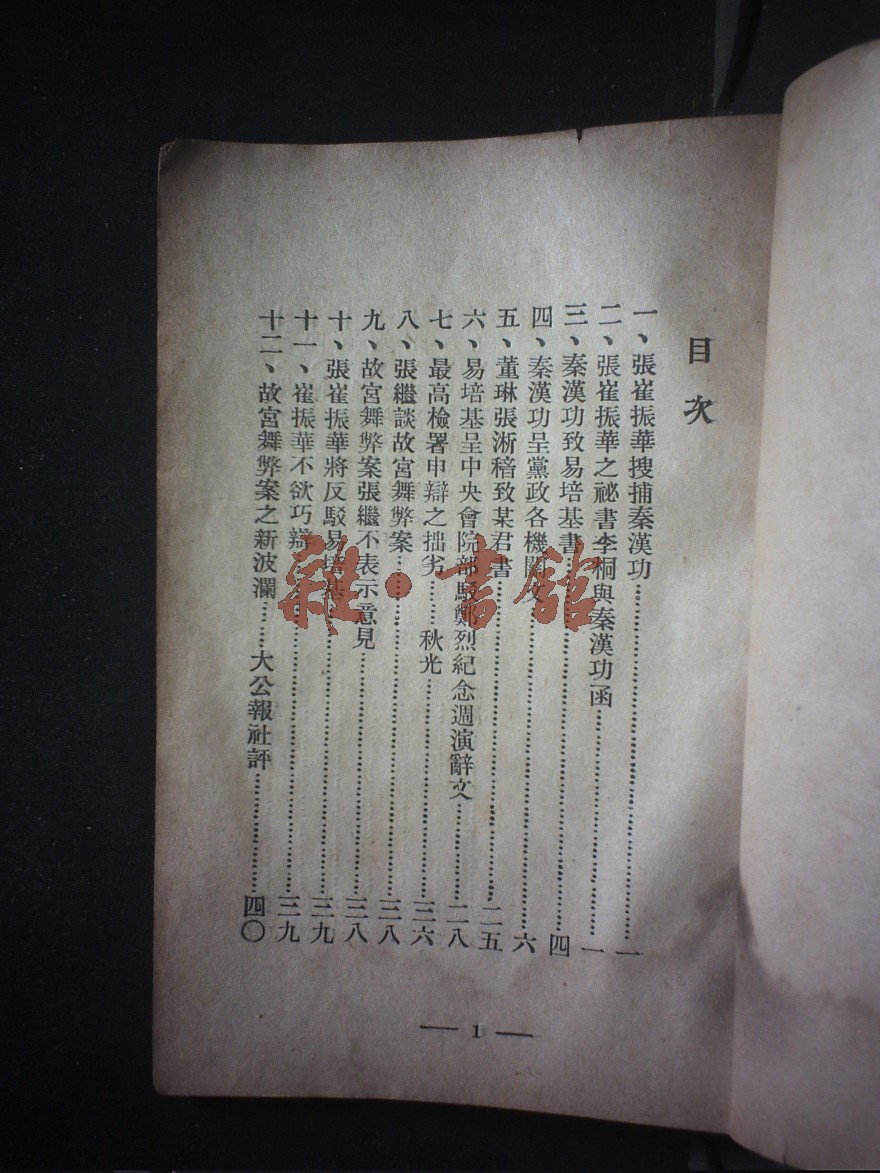 目次
一、張崔振華搜捕秦漢功……一
二、張崔振華之祕書李桐與秦漢功函……一
三、秦漢功致易培基書……四
四、秦漢功呈黨政各機關文……六
五、董琳張淅稽致某君書……二五
六、易培基呈中央會院部駁鄭烈紀念週演辭文……二八
七、最高檢署申辯之拙劣……秋光……三六
八、張繼談故宮舞弊案……三八
九、故宮舞弊案張繼不表示意見……三八
十、張崔振華將反駁易培基……三九
十一、崔振華不欲巧辯……三九
十二、故宮舞弊案之新波瀾……大公報社評……四〇
— 1 —
雜·書館